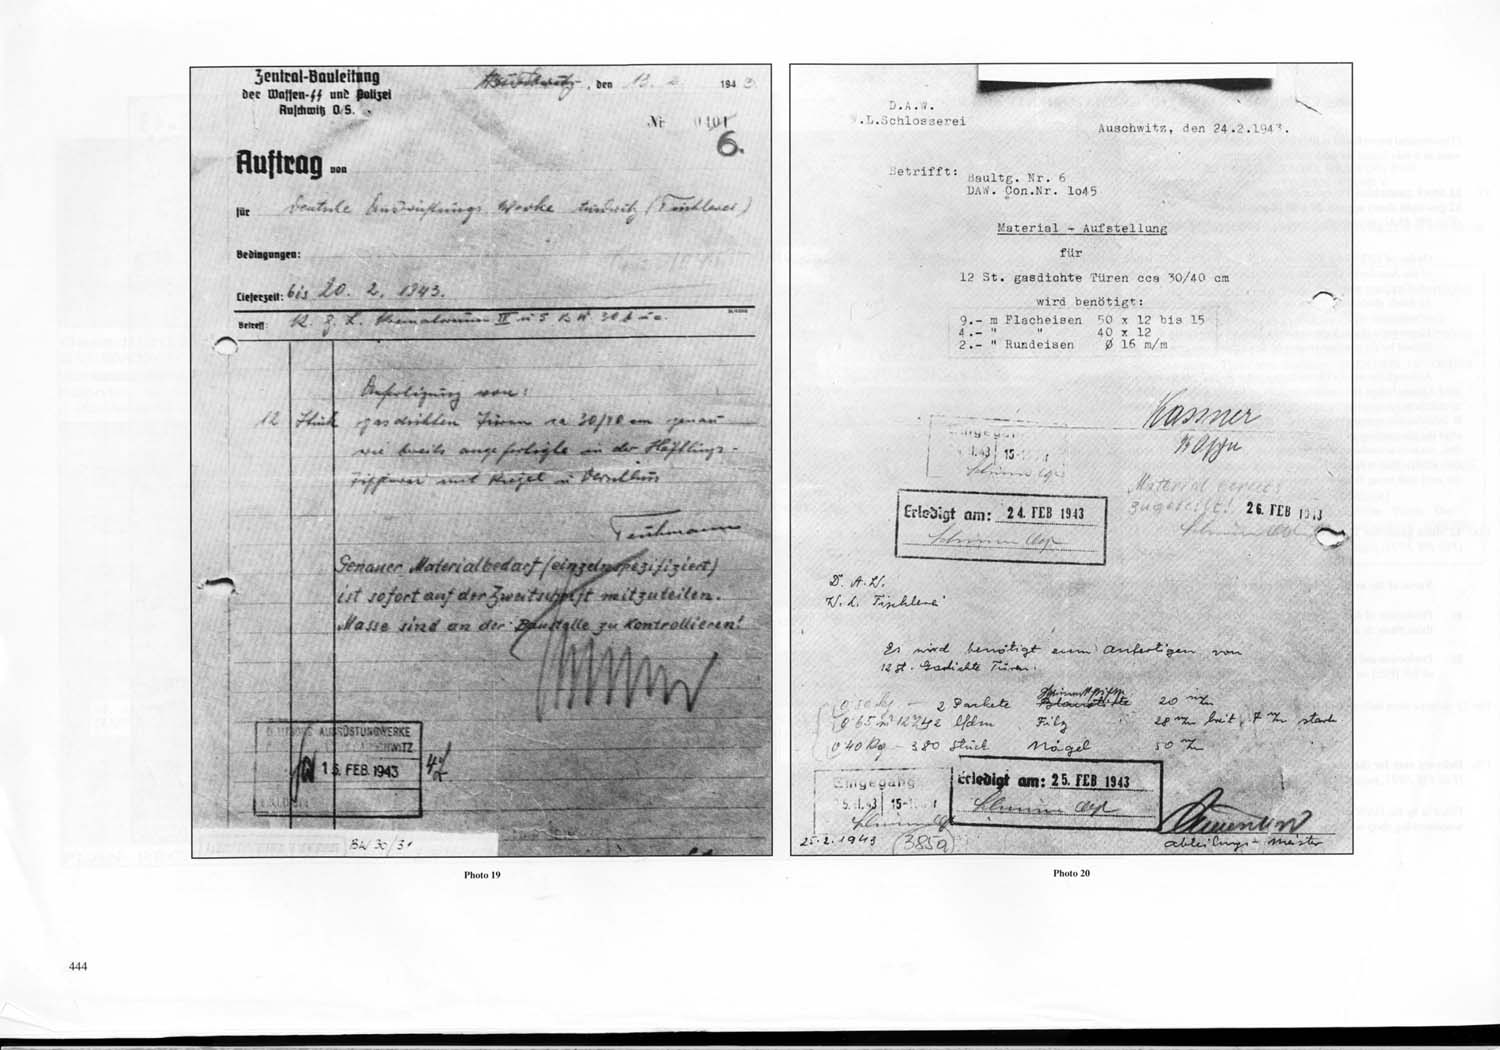 Zentral-Bauleitung
der Waffen-SS und Polizei
Auschwitz O/S.
Auschwitz, den 13. 2. 1943.
Nr 0101
6.
Auftrag von
für Deutsche Ausrüstungs Werke Auschwitz (Tischlerei)
Bedingungen:
Lieferzeit: bis 20. 2. 1943.
Betreff: K. G. L. Krematorium IV u 5 BW 30 b u c.
Anfertigung von:
12 Stück gasdichten Türen ca 30/40 cm genau
wie bereits angefertigte in der Häftlings-
mit Riegel u Verschluss
Teichmann
Genauer Materialbedarf (einzeln spezifiziert)
ist sofort auf der Zweitschrift mitzuteilen.
Masse sind an der Baustelle zu kontrollieren!
DEUTSCHE AUSRÜSTUNGSWERKE
AUSCHWITZ
15. FEB. 1943
BW 30/31
Photo 19
D.A.W.
W.L.Schlosserei
Auschwitz, den 24.2.1943.
Betrifft: Baultg. Nr. 6
DAW. Con.Nr. 1o45
Material - Aufstellung
für
12 St. gasdichte Türen cca 30/40 cm
wird benötigt:
9.- m Flacheisen 50 x 12 bis 15
4.- " " 40 x 12
2.- " Rundeisen ø 16 m/m
Kassner
Eingegang
15-
Material bereits
zugeteilt! 26 FEB 1943
Erledigt am: 24. FEB 1943
D. A. W.
W. L. Tischlerei
Es wird benötigt zum Anfertigen von
12 st. Gasdichte Türen.
2 Packete 20 m/m
Filz 28 m/m breit, 7 m/m stark
0'40 Kg - 380 Stück Nägel 50 m/m
Eingegang
15-
Erledigt am: 25. FEB 1943
25.2.1943 (385a)
Abteilungs-meister
Photo 20
444